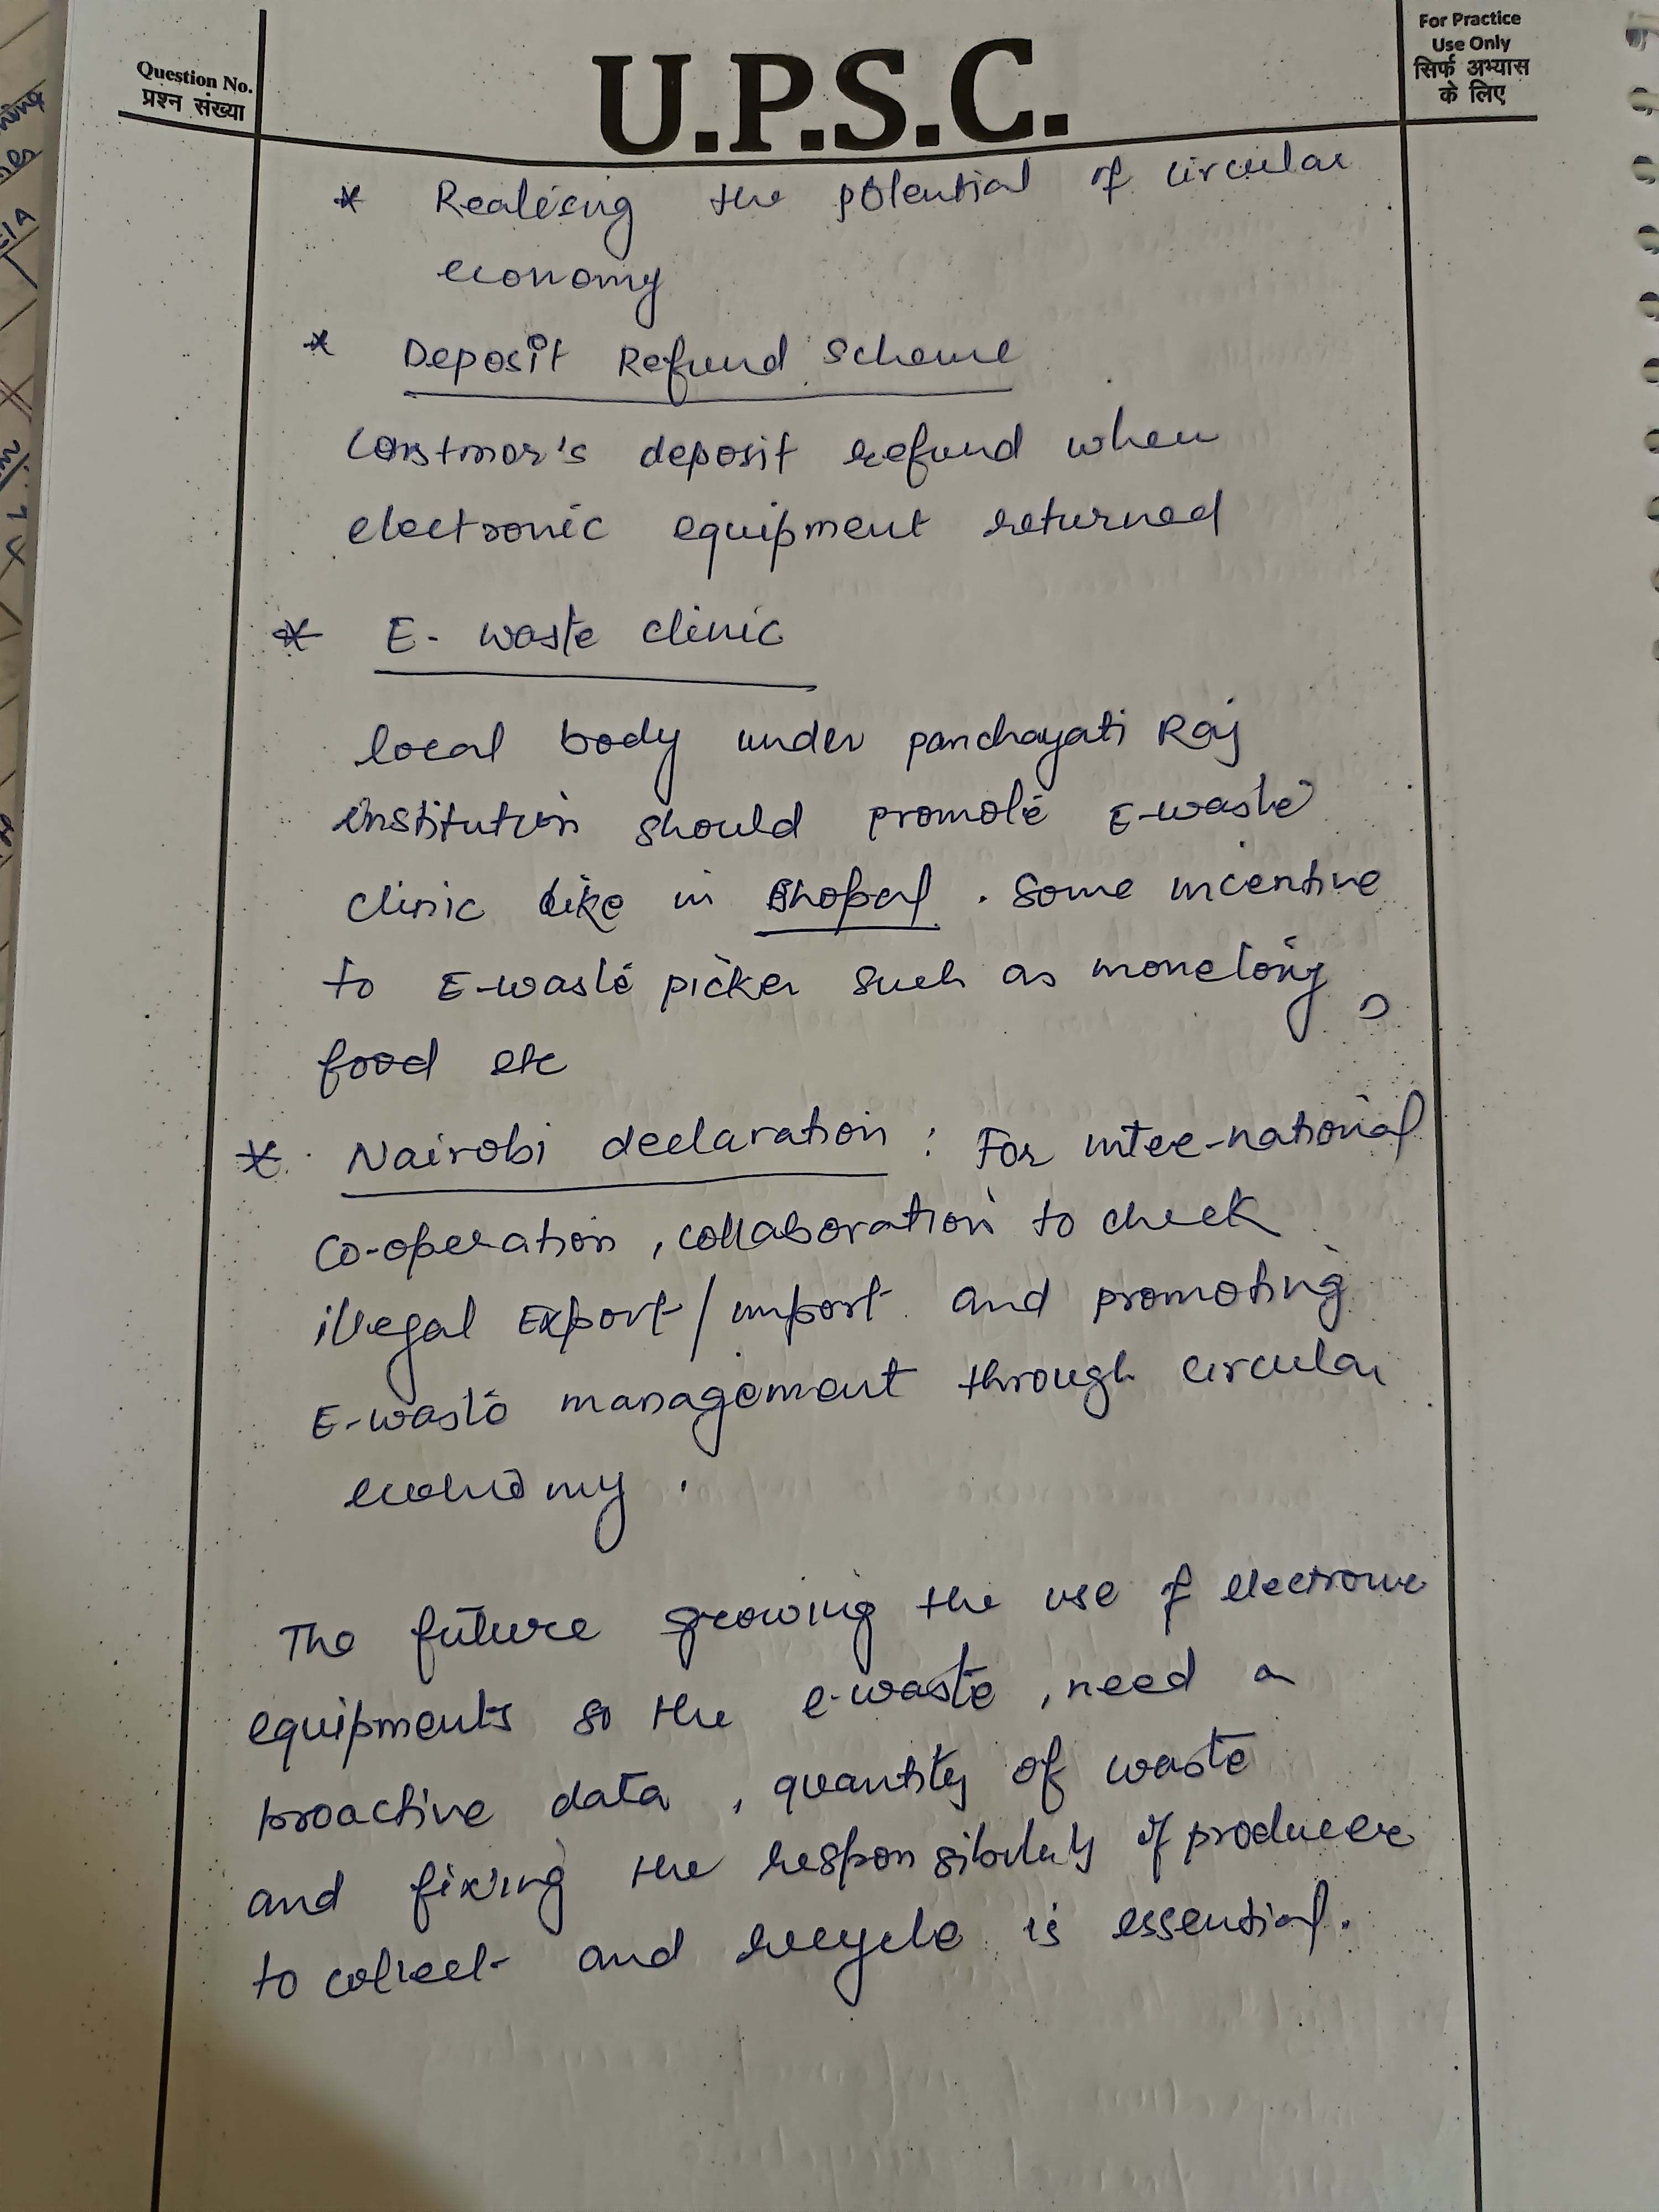 Question No.
प्रश्न संख्या
U.P.S.C.
For Practice
Use Only
सिर्फ अभ्यास
के लिए
* Realising the potential of circular
economy
* Deposit Refund Scheme
deposit refund when
electronic equipment returned
* E- waste clinic
local body under panchayati Raj
institution should promote E-waste
clinic like in Bhopal . Some incentive
to E-waste picker such as monetory,
food etc
* Nairobi declaration : For inter-national
Co-operation , collaboration to check
illegal Export/import and promoting
E-waste management through circular
economy .
The future growing the use of electronic
equipments so the e-waste , need a
proactive data , quantity of waste
and fixing the responsibility of producer
to collect and recycle is essential.